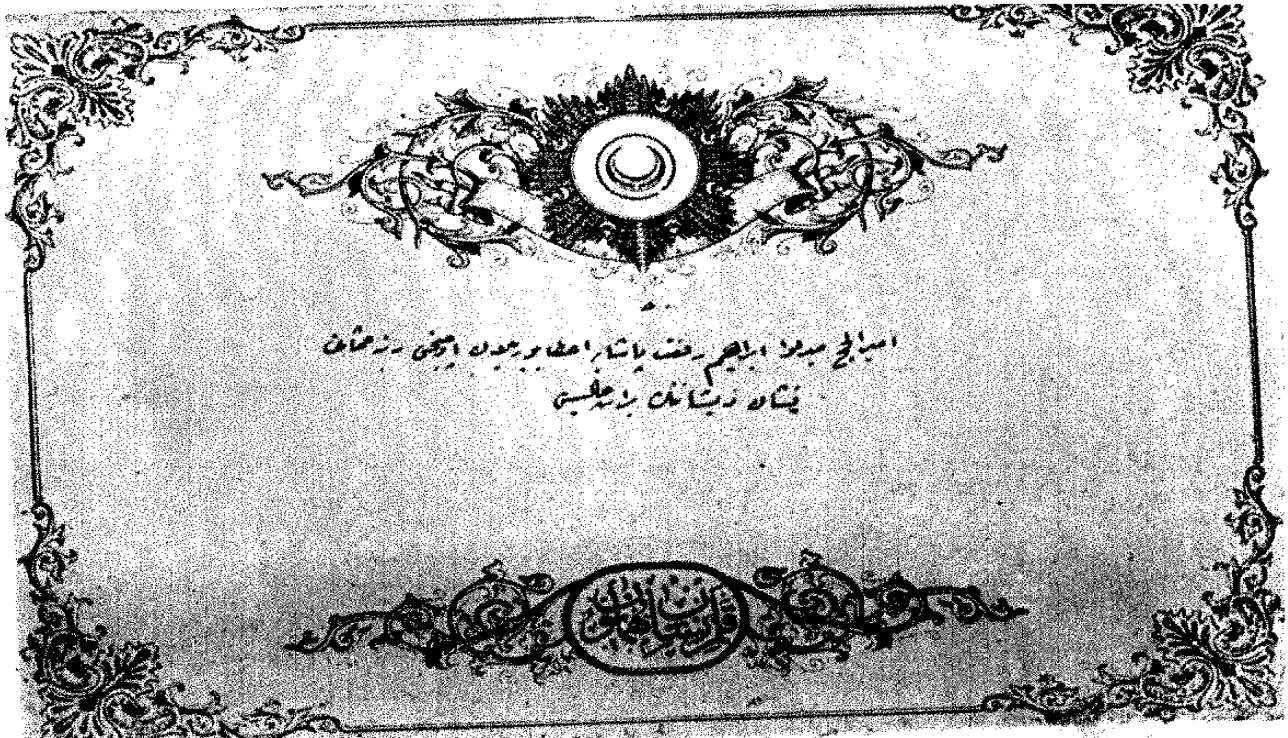 امیرالحج میرلوا ابراهیم رفعت پاشایه اعطا بوریلان اوچنجی رتبه عثمانی
نشان ذیشاننک براتعالیسی
قلم نشان همایون